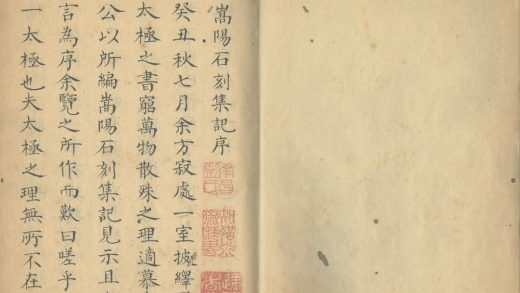 嵩陽石刻集記序
癸丑秋七月余方寂處一室披繹
太極之書窮萬物散殊之理適慕
公以所編嵩陽石刻集記見示且
言為序余覽之所作而歎曰嗟乎
一太極也夫太極之理無所不在